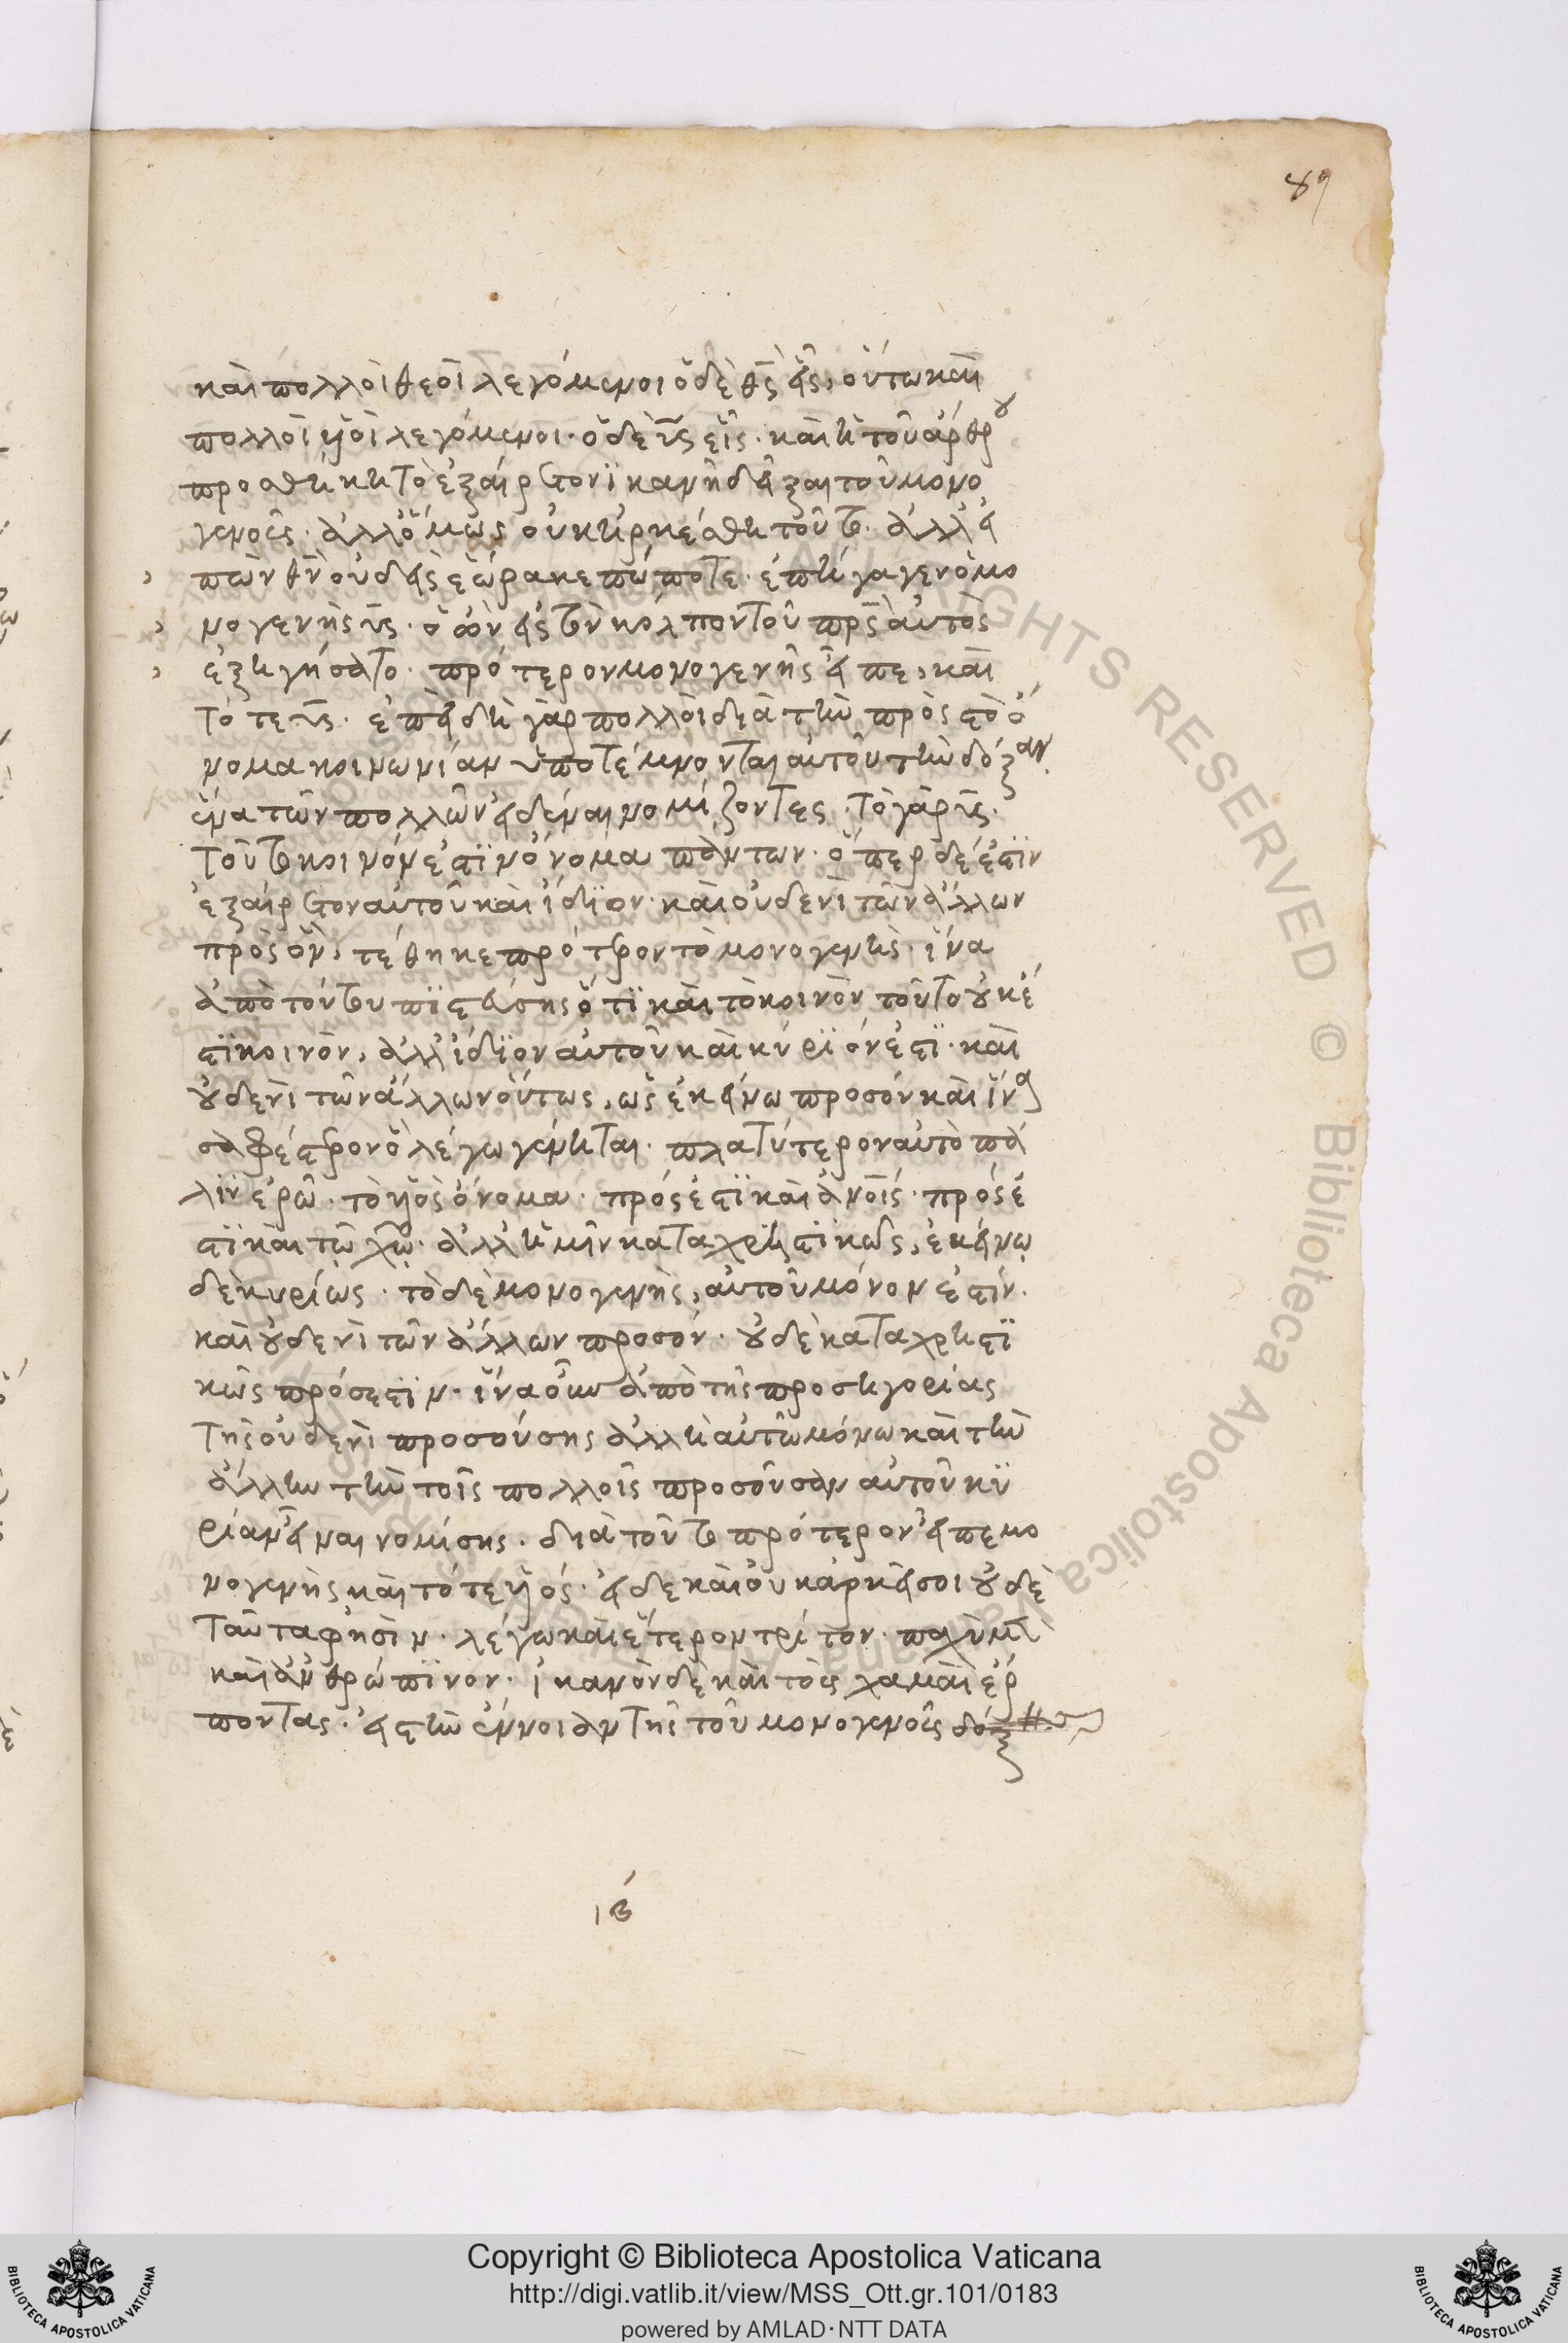 89
καὶ πολλοὶ θεοὶ λεγόμενοι ὁ δὲ θς εἷς, οὕτω καὶ
πολλοὶ υἱοὶ λεγόμενοι· ὁ δὲ υς εἷς· καὶ ἡ τοῦ ἄρθρου
προσθήκη τὸ ἐξαίρετον ἱκανὴ δεῖξαι τοῦ μονο
γενοῦς· ἀλλ' ὅμως οὐκ ἠρκέσθη τούτω· ἀλλ' εἰ
πὼν θν οὐδεὶς ἑώρακε πώποτε· ἐπήγαγεν ὁ μο
νογενὴς υς· ὁ ὢν εἰς τὸν κόλπον τοῦ πρς αὐτὸς
ἐξηγήσατο· πρότερον μονογενὴς εἶπε, καὶ
τότε υς· ἐπειδὴ γὰρ πολλοὶ διὰ τὴν πρὸς τὸ ὄ
νομα κοινωνίαν ὑποτέμνονται αὐτοῦ τὴν δόξαν
ἕνα τῶν πολλῶν εἶναι νομίζοντες· τὸ γὰρ υς·
τοῦτο κοινόν ἐστιν ὄνομα πάντων· ὅπερ δέ ἐστιν
ἐξαίρετον αὐτοῦ καὶ ἴδιον· καὶ οὐδενὶ τῶν ἄλλων
προσὸν, τέθηκε πρότερον τὸ μονογενὴς· ἵνα
ἀπὸ τούτου πιστεύσης ὅτι καὶ τὸ κοινὸν τοῦτο οὐκ ἔ
στι κοινὸν, ἀλλ' ἴδιον αὐτοῦ καὶ κύριόν ἐστι· καὶ
οὐδενὶ τῶν ἄλλων οὕτως, ὡς ἐκείνω προσόν καὶ ἵνα
σαφέστερον ὃ λέγω γένηται· πλατύτερον αὐτὸ πά
λιν ἐρῶ· τὸ υἱὸς ὄνομα· πρόσεστι καὶ ἀνοις· πρόσε
στι καὶ τῷ χῷ· ἀλλ' ἡμῖν καταχρηστικῶς, ἐκείνῳ
δὲ κυρίως· τὸ δὲ μονογενὴς, αὐτοῦ μόνον ἐστίν·
καὶ οὐδενὶ τῶν ἄλλων προσόν· οὐδὲ καταχρηστι
κῶς πρόσεστιν· ἵνα οὖν ἀπὸ τῆς προσηγορίας
τῆς οὐδενὶ προσούσης ἀλλ' ἢ αὐτῶ μόνω καὶ τὴν
ἄλλην τὴν τοῖς πολλοῖς προσοῦσαν αὐτοῦ κυ
ρίαν εἶναι νομίσης· διὰ τοῦτο πρότερον εἶπε μο
νογενὴς καὶ τότε υἱός· εἰ δὲ καὶ οὐκ ἀρκεῖ σοι οὐδὲ
ταῦτα φησὶν· λέγω καὶ ἕτερον τρίτον· παχὺ μὲν
καὶ ἀνθρώπινον· ἱκανὸν δὲ καὶ τοὺς χαμαὶ ἕρ
ποντας· εἰς τὴν ἔννοιαν τῆς τοῦ μονογενοῦς δόξης
ιβ
ALL RIGHTS RESERVED © Biblioteca Apostolica Vaticana
Copyright © Biblioteca Apostolica Vaticana
http://digi.vatlib.it/view/MSS_Ott.gr.101/0183
powered by AMLAD·NTT DATA
BIBLIOTECA APOSTOLICA VATICANA
BIBLIOTECA APOSTOLICA VATICANA